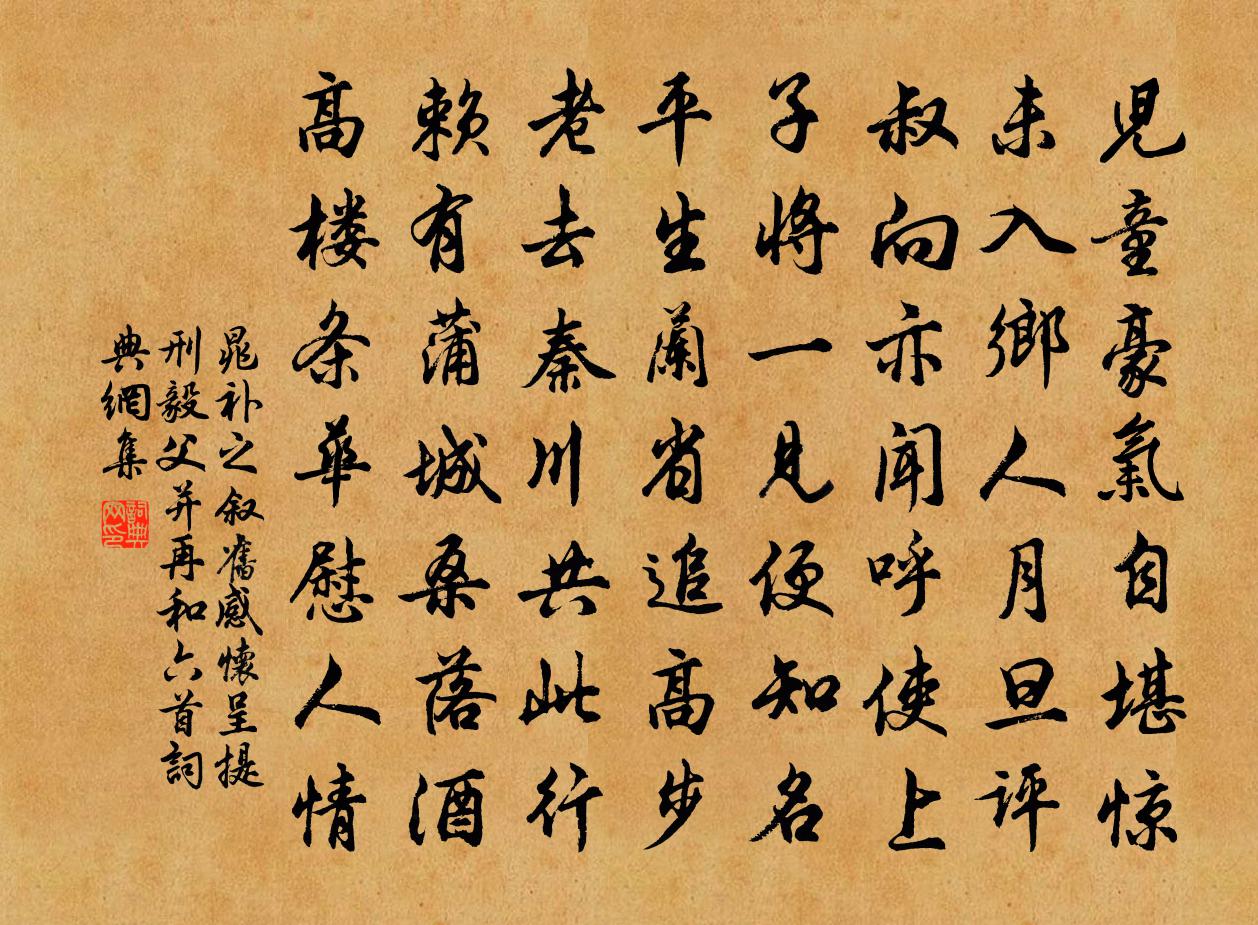 児童豪氣自堪惊
未入鄉人月旦評
叔向亦聞呼使上
子將一見便知名
平生蘭省追高步
老去秦川共此行
賴有蒲城桑落酒
高楼条華慰人情
晁补之叙舊感懷呈提
刑毅父并再和六首詞
典網集
詞典网印